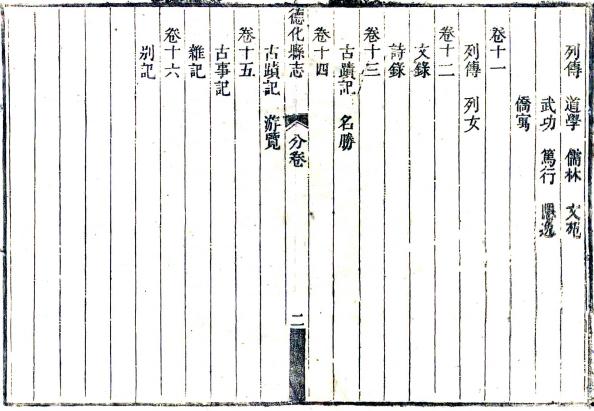 列傳 道學 儒林 文苑
武功 篤行 隱逸
僑寓
卷十一
列傳 列女
卷十二
文錄
詩錄
卷十三
古蹟記 名勝
卷十四
德化縣志 分卷 二
古蹟記 游覽
卷十五
古事記
雜記
卷十六
別記